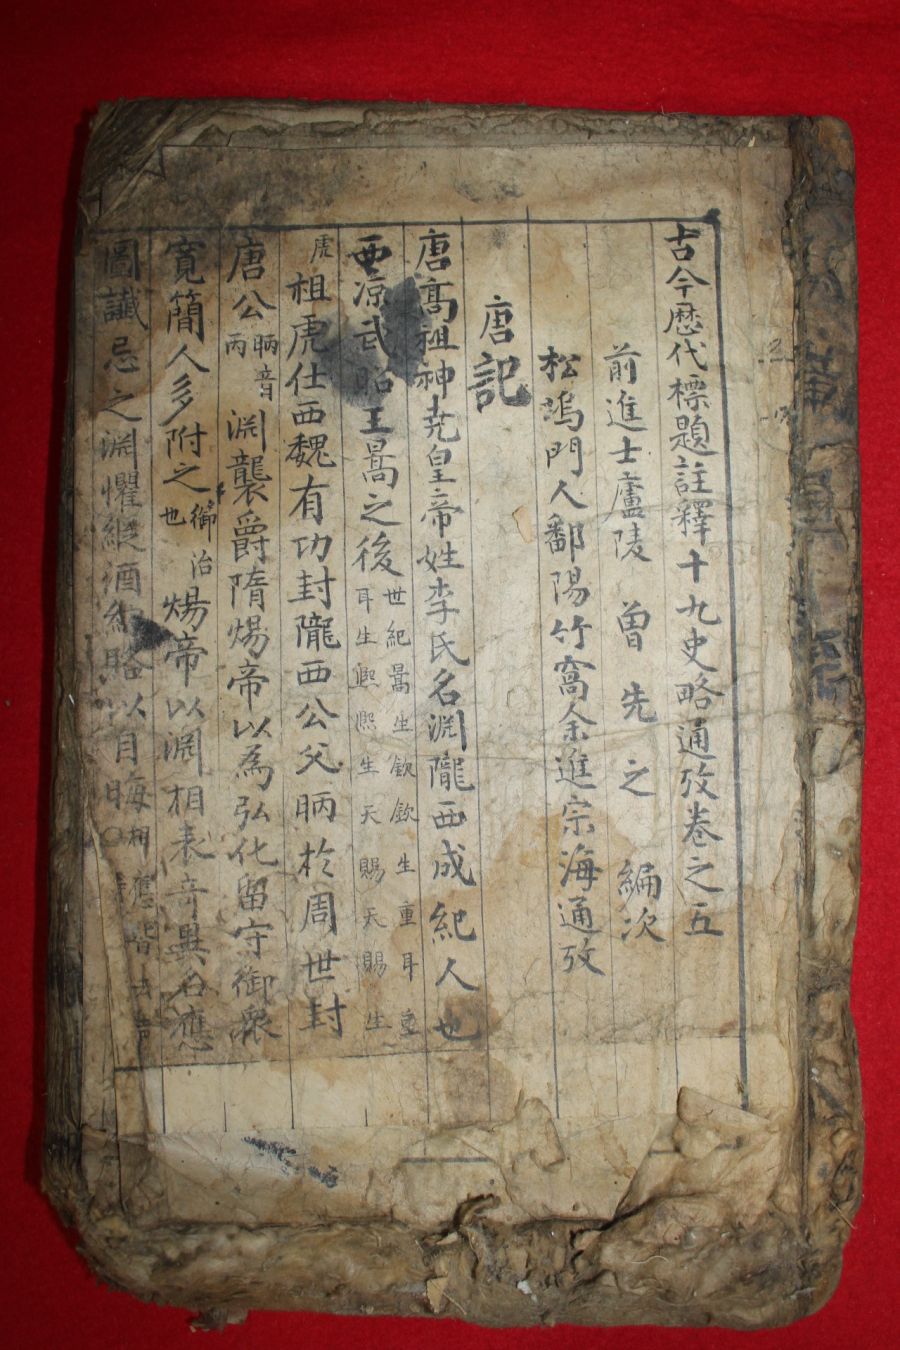 古今歷代標題註釋十九史略通攷卷之五
前進士廬陵 曾 先 之 編次
松塢門人鄱陽竹窩余進宗海通攷
唐記
唐髙祖神尭皇帝姓李氏名淵隴西成紀人也
西凉武昭王暠之後世紀暠生歆歆生重耳重耳生熈熈生天賜天賜生
虎祖虎仕西魏有功封隴西公父昞於周世封
唐公昞音丙淵襲爵隋煬帝以為弘化留守御衆
寛簡人多附之御治也煬帝以淵相表竒異名應
圖讖忌之淵懼縱酒納賂以自晦